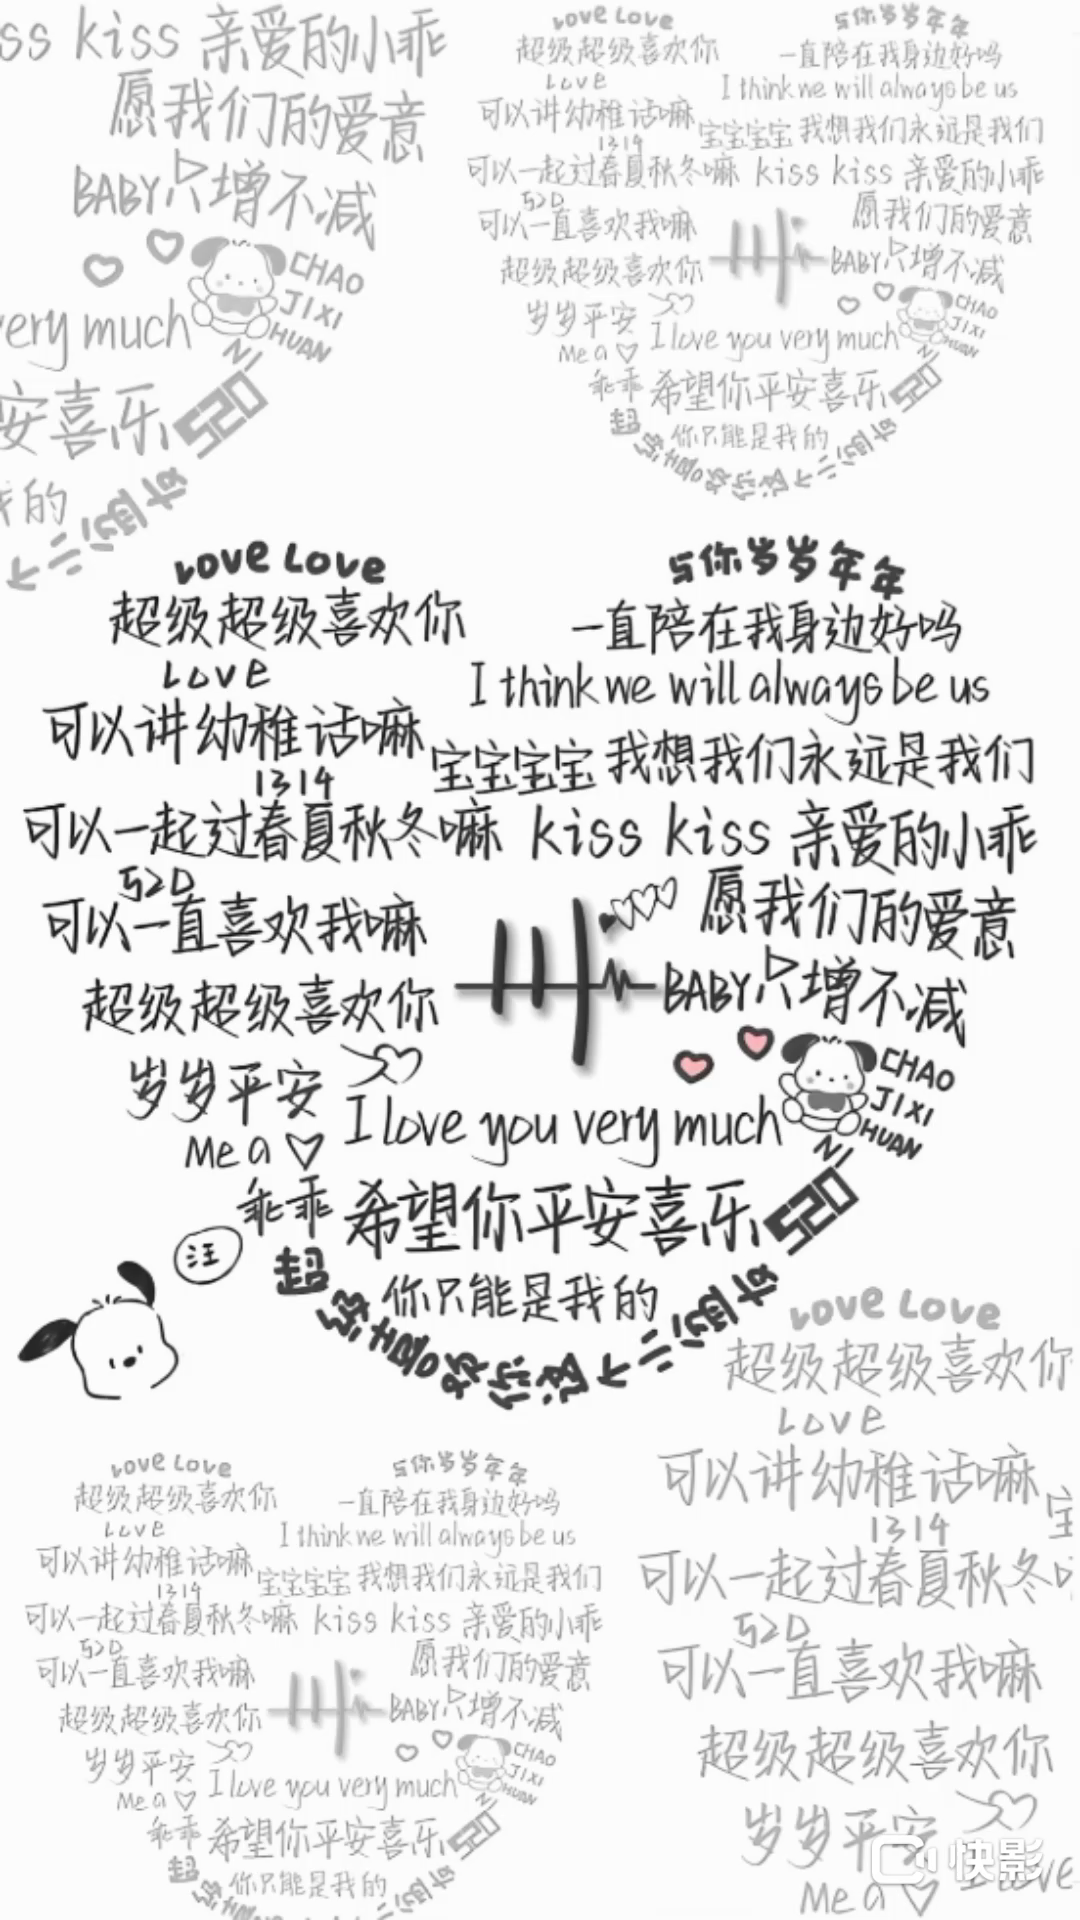 ss kiss 亲爱的小乖
愿我们的爱意
BABY只增不减
CHAO
JIXI
HUAN
NI
very much
安喜乐 520
我的
Love Love
与你岁岁年年
超级超级喜欢你
一直陪在我身边好吗
Love
I think we will always be us
可以讲幼稚话嘛
宝宝宝宝 我想我们永远是我们
1314
可以一起过春夏秋冬嘛 kiss kiss 亲爱的小乖
520
可以一直喜欢我嘛
愿我们的爱意
超级超级喜欢你
BABY只增不减
岁岁平安
CHAO
JIXI
HUAN
NI
Me a
I love you very much
乖乖 希望你平安喜乐 520
你只能是我的
Love Love
与你岁岁年年
超级超级喜欢你
一直陪在我身边好吗
Love
I think we will always be us
可以讲幼稚话嘛
宝宝宝宝 我想我们永远是我们
1314
可以一起过春夏秋冬嘛 kiss kiss 亲爱的小乖
520
可以一直喜欢我嘛
愿我们的爱意
超级超级喜欢你
BABY只增不减
岁岁平安
CHAO
JIXI
HUAN
NI
Me a
I love you very much
乖乖 希望你平安喜乐 520
汪
你只能是我的
Love Love
超级超级喜欢你
Love
可以讲幼稚话嘛
1314
可以一起过春夏秋冬
520
可以一直喜欢我嘛
超级超级喜欢你
岁岁平安
Me a
I love
Love Love
与你岁岁年年
超级超级喜欢你
一直陪在我身边好吗
Love
I think we will always be us
可以讲幼稚话嘛
宝宝宝宝 我想我们永远是我们
1314
可以一起过春夏秋冬嘛 kiss kiss 亲爱的小乖
520
可以一直喜欢我嘛
愿我们的爱意
超级超级喜欢你
BABY只增不减
岁岁平安
CHAO
JIXI
HUAN
NI
Me a
I love you very much
乖乖 希望你平安喜乐 520
你只能是我的
快影